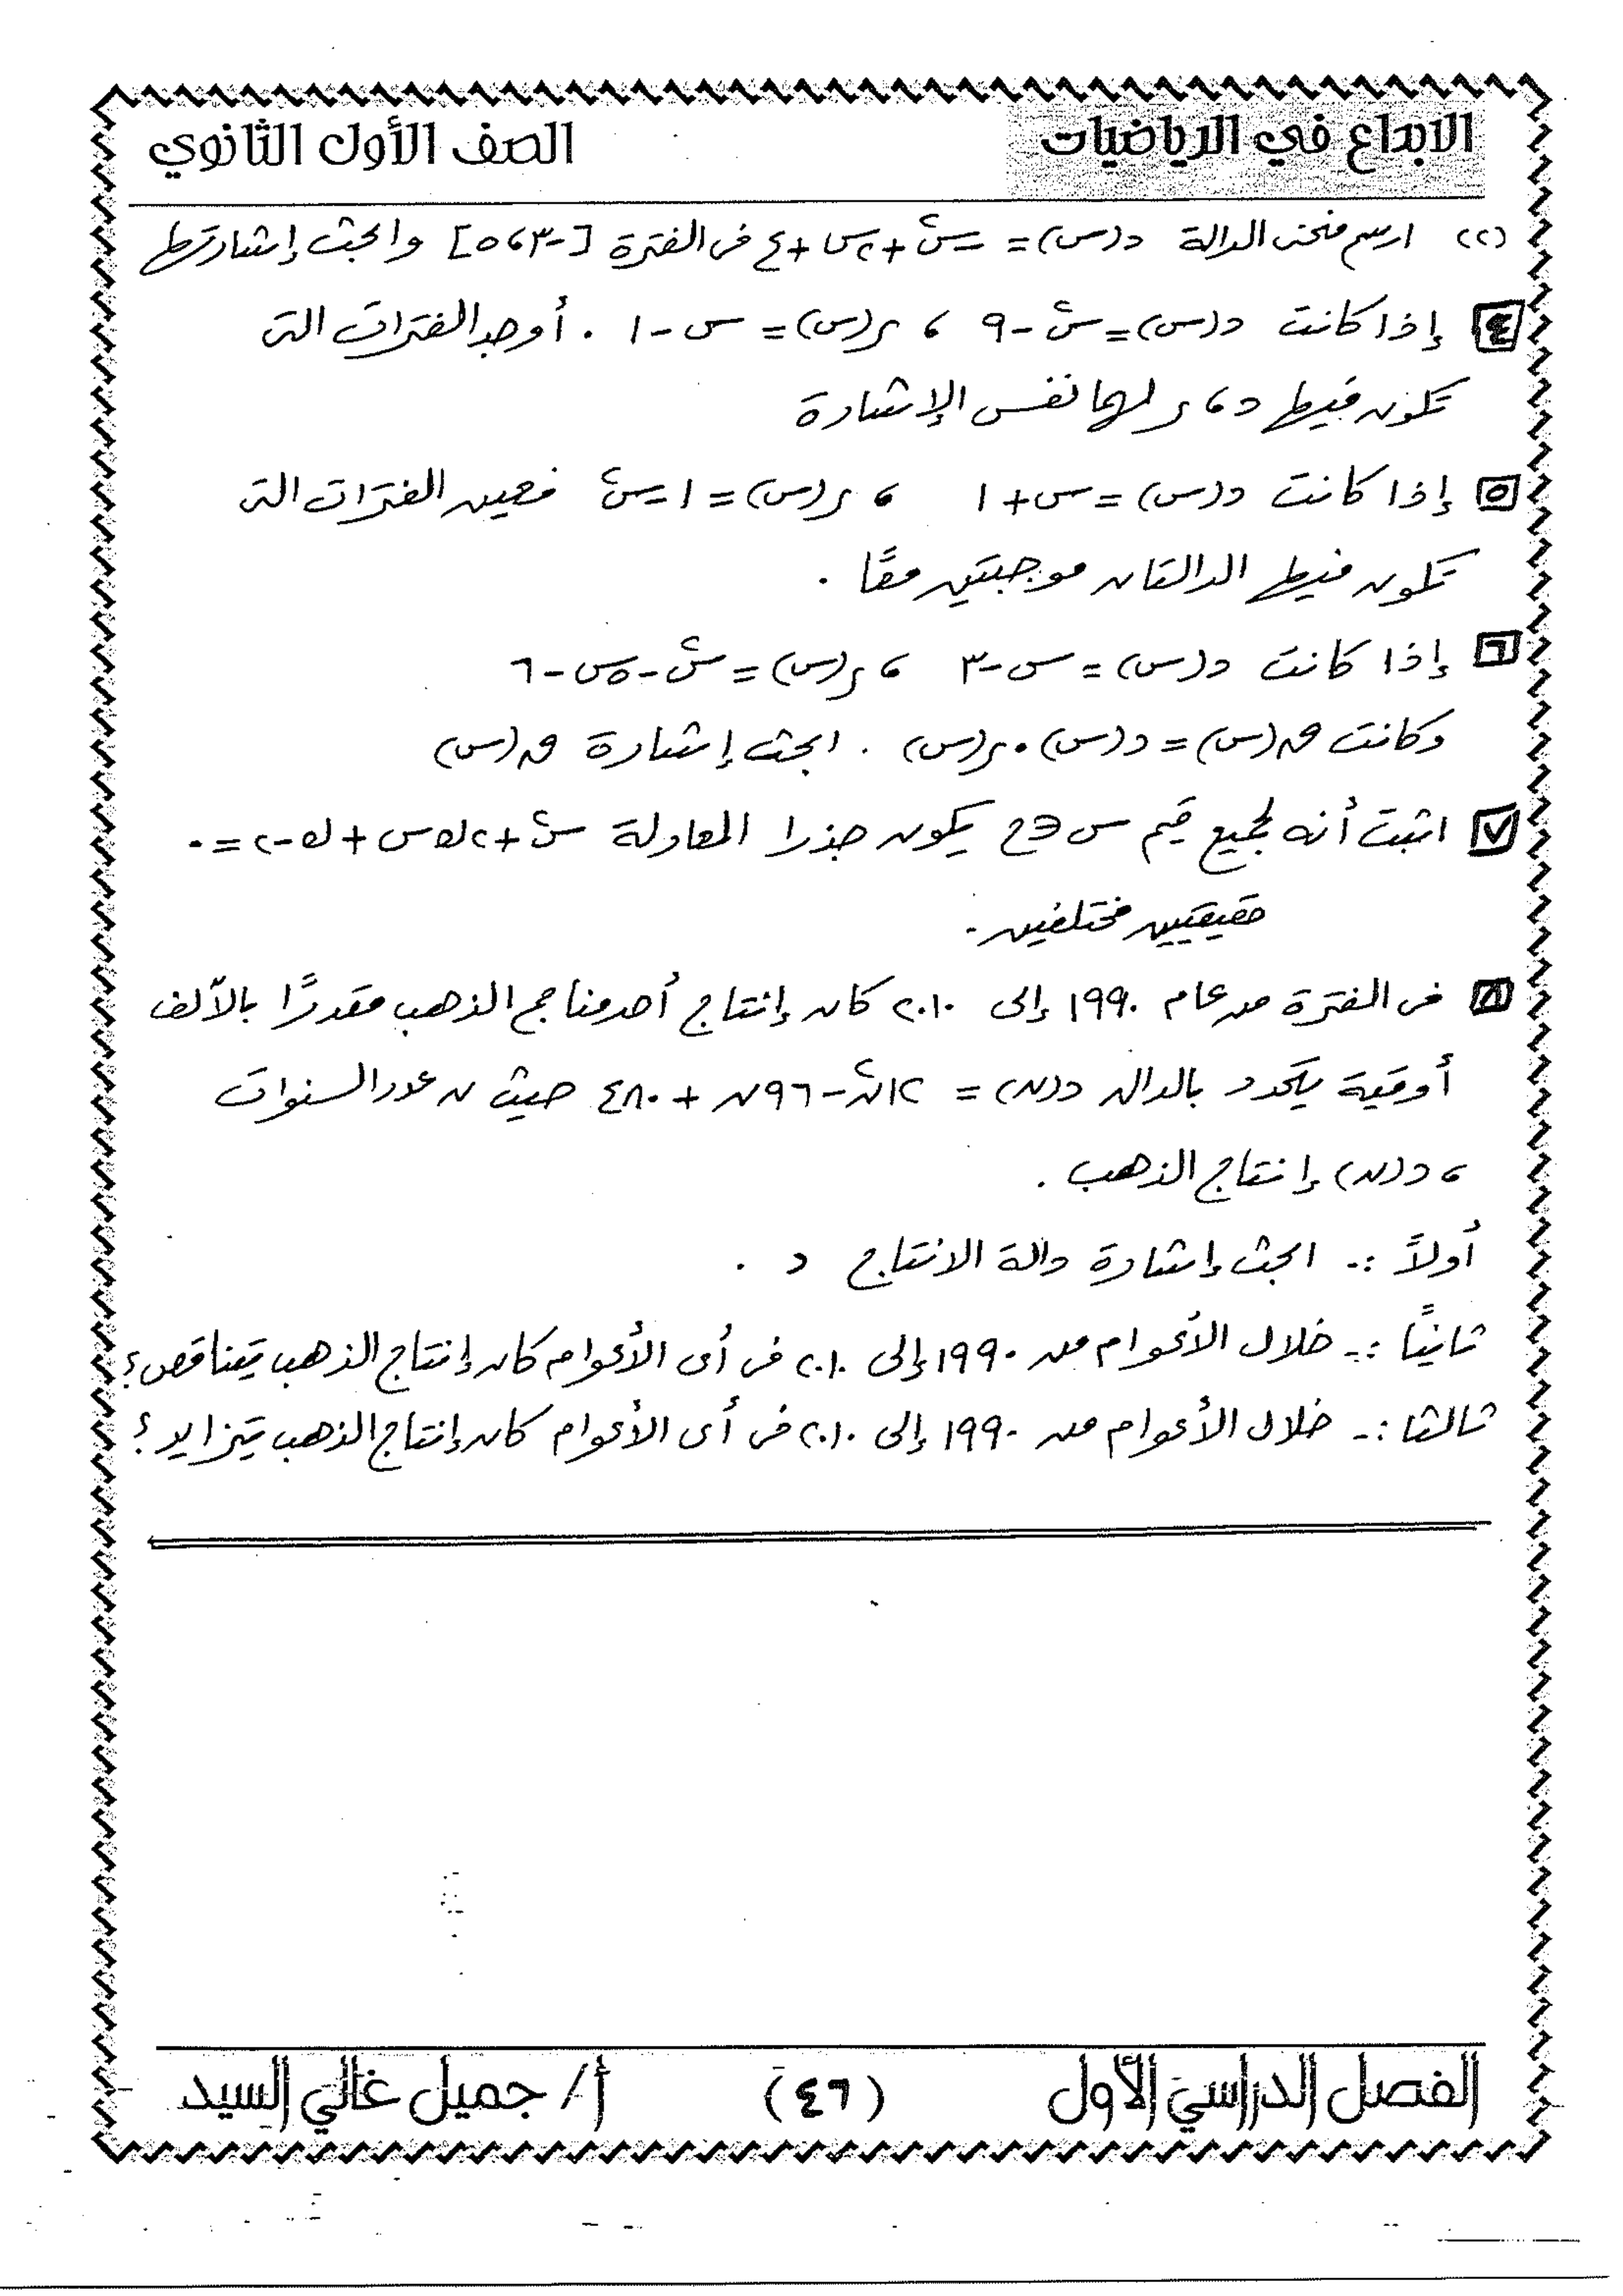 الابداع في الرياضيات
الصف الأول الثانوي
(٢) ارسم منحنى الدالة د(س) = -س² + ٢س + ٤ فى الفترة [-٣، ٥] وابحث إشارتها
٤ إذا كانت د(س) = س² - ٩ ، ر(س) = س - ١ . أوجد الفترات التى
تكون فيها د ، ر لهما نفس الإشارة
٥ إذا كانت د(س) = س + ١ ، ر(س) = ١ - س² فعين الفترات التى
تكون فيها الدالتان موجبتين معًا .
٦ إذا كانت د(س) = س - ٣ ، ر(س) = س² - ٥س - ٦
وكانت ق(س) = د(س) . ر(س) . ابحث إشارة ق(س)
٧ اثبت أنه لجميع قيم س ∈ ح يكون جذرا المعادلة س² + ٢ك س + ك - ٢ = ٠
حقيقيين مختلفين .
٨ فى الفترة من عام ١٩٩٠ إلى ٢٠١٠ كان إنتاج أحد مناجم الذهب مقدرًا بالألف
أوقية يتحدد بالدالة د(ن) = ١٢ن² - ٩٦ن + ٤٨٠ حيث ن عدد السنوات
، د(ن) إنتاج الذهب .
أولاً :- ابحث إشارة دالة الانتاج د .
ثانيًا :- خلال الأعوام من ١٩٩٠ إلى ٢٠١٠ فى أى الأعوام كان إنتاج الذهب يتناقص؟
ثالثا :- خلال الأعوام من ١٩٩٠ إلى ٢٠١٠ فى أى الأعوام كان إنتاج الذهب يتزايد؟
الفصل الدراسي الأول
(٤٦)
أ/ جميل غالي السيد